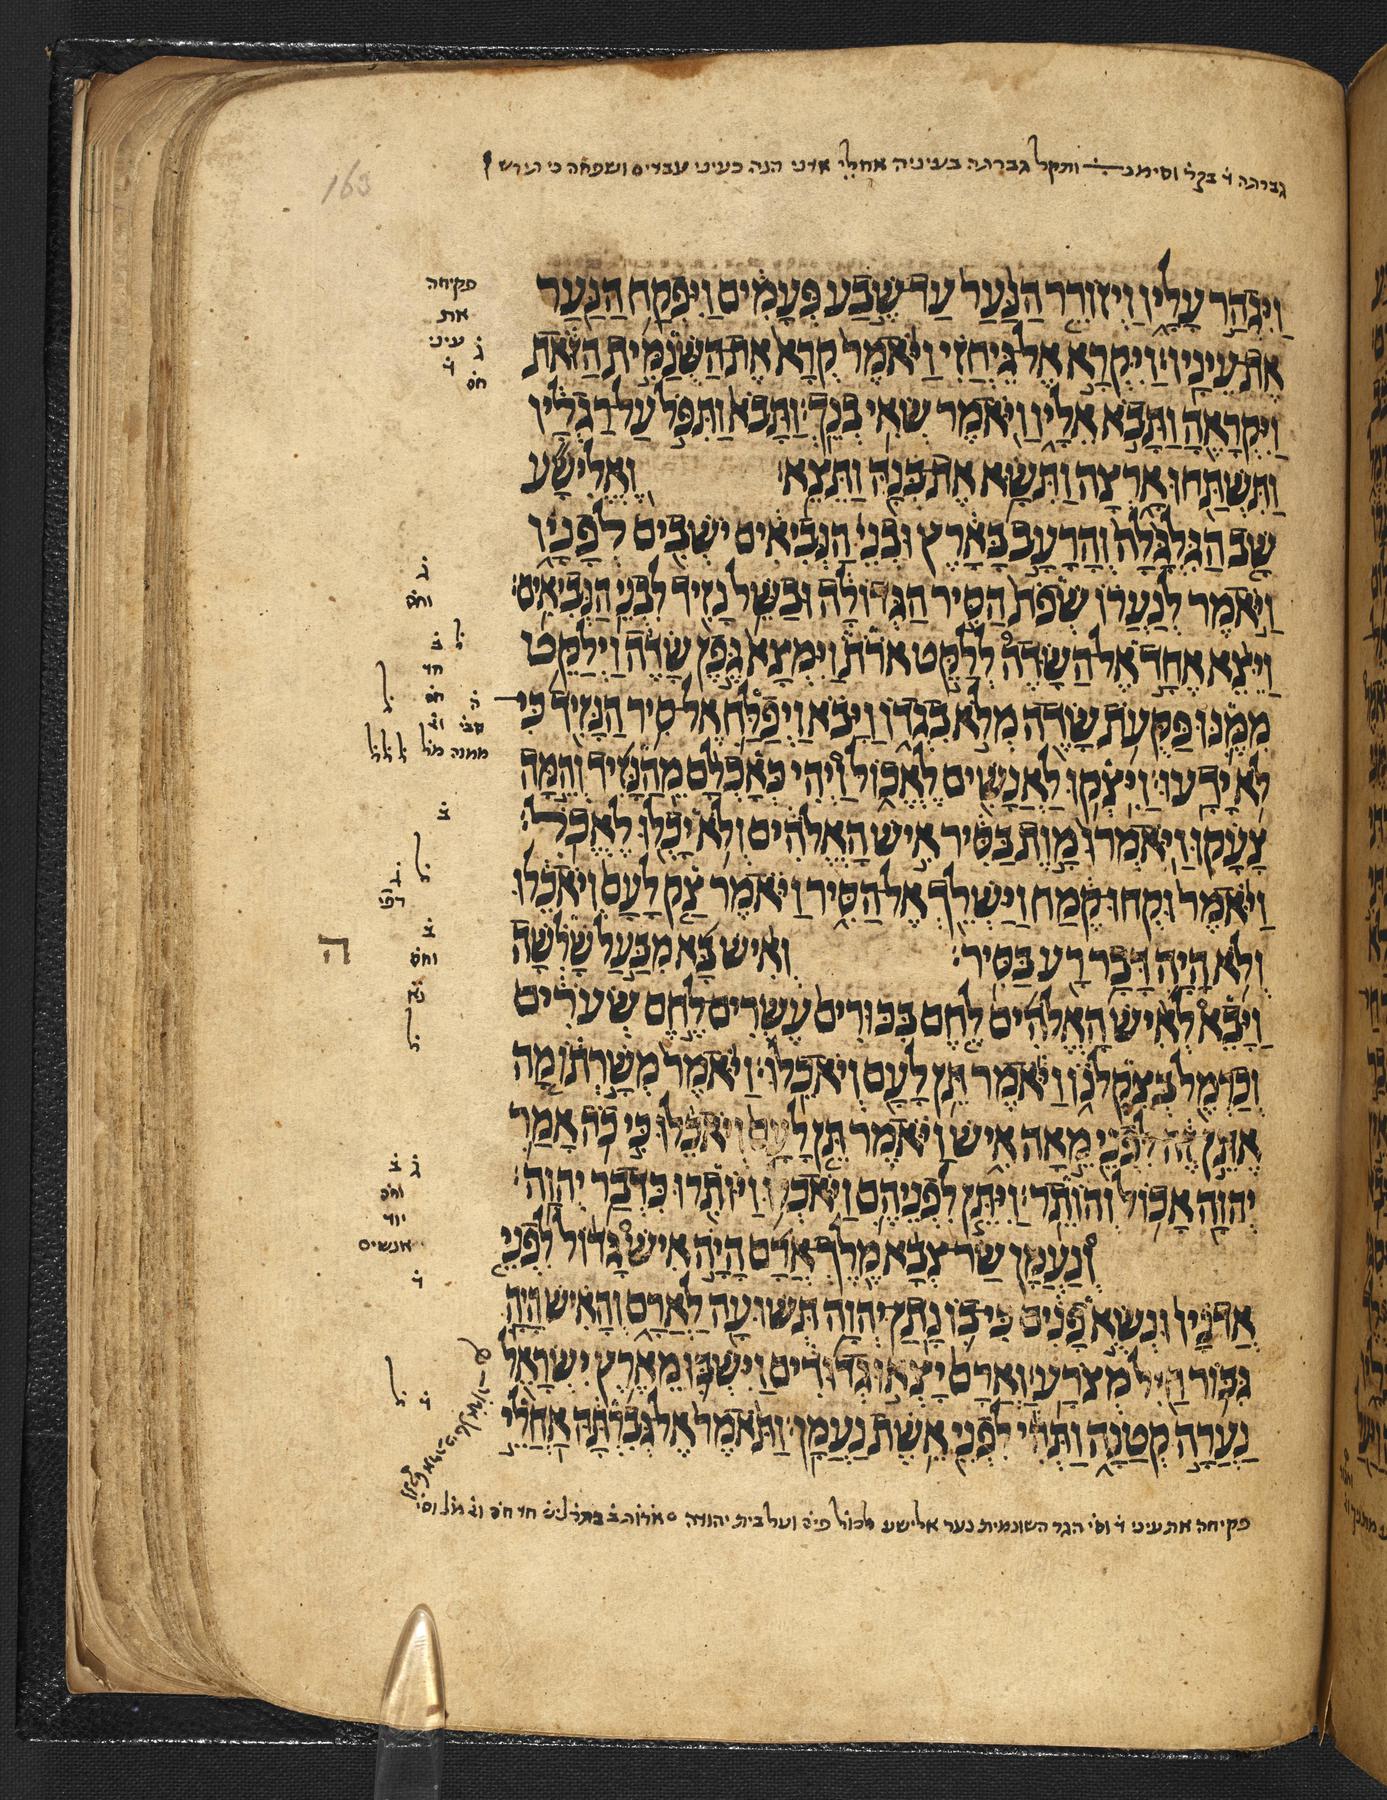 163
גברתה ד֗ בקר֗ וסימנ֗ ותקל גברתה בעיניה אחלי אדני הנה כעיני עבדים ושפחה כי תירש
וַיִּגְהַר עָלָיו וַיְזוֹרֵר הַנַּעַר עַד שֶׁבַע פְּעָמִים וַיִּפְקַח הַנַּעַר
אֶת עֵינָיו׃ וַיִּקְרָא אֶל גֵּיחֲזִי וַיֹּאמֶר קְרָא אֶת הַשֻּׁנַמִּית הַזֹּאת
וַיִּקְרָאֶהָ וַתָּבֹא אֵלָיו וַיֹּאמֶר שְׂאִי בְנֵךְ׃ וַתָּבֹא וַתִּפֹּל עַל רַגְלָיו
וַתִּשְׁתַּחוּ אָרְצָה וַתִּשָּׂא אֶת בְּנָהּ וַתֵּצֵא׃ וֶאֱלִישָׁע
שָׁב הַגִּלְגָּלָה וְהָרָעָב בָּאָרֶץ וּבְנֵי הַנְּבִיאִים יֹשְׁבִים לְפָנָיו
וַיֹּאמֶר לְנַעֲרוֹ שְׁפֹת הַסִּיר הַגְּדוֹלָה וּבַשֵּׁל נָזִיד לִבְנֵי הַנְּבִיאִים׃
וַיֵּצֵא אֶחָד אֶל הַשָּׂדֶה לְלַקֵּט אֹרֹת וַיִּמְצָא גֶּפֶן שָׂדֶה וַיְלַקֵּט
מִמֶּנּוּ פַּקֻּעֹת שָׂדֶה מְלֹא בִגְדוֹ וַיָּבֹא וַיְפַלַּח אֶל סִיר הַנָּזִיד כִּי
לֹא יָדָעוּ׃ וַיִּצְקוּ לַאֲנָשִׁים לֶאֱכוֹל וַיְהִי כְּאָכְלָם מֵהַנָּזִיד וְהֵמָּה
צָעָקוּ וַיֹּאמְרוּ מָוֶת בַּסִּיר אִישׁ הָאֱלֹהִים וְלֹא יָכְלוּ לֶאֱכֹל׃
וַיֹּאמֶר וּקְחוּ קֶמַח וַיַּשְׁלֵךְ אֶל הַסִּיר וַיֹּאמֶר צַק לָעָם וְיֹאכֵלוּ
וְלֹא הָיָה דָּבָר רָע בַּסִּיר׃ וְאִישׁ בָּא מִבַּעַל שָׁלִשָׁה
וַיָּבֵא לְאִישׁ הָאֱלֹהִים לֶחֶם בִּכּוּרִים עֶשְׂרִים לֶחֶם שְׂעֹרִים
וְכַרְמֶל בְּצִקְלֹנוֹ וַיֹּאמֶר תֵּן לָעָם וְיֹאכֵלוּ׃ וַיֹּאמֶר מְשָׁרְתוֹ מָה
אֶתֵּן זֶה לִפְנֵי מֵאָה אִישׁ וַיֹּאמֶר תֵּן לָעָם וְיֹאכֵלוּ כִּי כֹה אָמַר
יְהוָה אָכוֹל וְהוֹתֵר׃ וַיִּתֵּן לִפְנֵיהֶם וַיֹּאכְלוּ וַיּוֹתִרוּ כִּדְבַר יְהוָה׃
וְנַעֲמָן שַׂר צְבָא מֶלֶךְ אֲרָם הָיָה אִישׁ גָּדוֹל לִפְנֵי
אֲדֹנָיו וּנְשֻׂא פָנִים כִּי בוֹ נָתַן יְהוָה תְּשׁוּעָה לַאֲרָם וְהָאִישׁ הָיָה
גִּבּוֹר חַיִל מְצֹרָע׃ וַאֲרָם יָצְאוּ גְדוּדִים וַיִּשְׁבּוּ מֵאֶרֶץ יִשְׂרָאֵל
נַעֲרָה קְטַנָּה וַתְּהִי לִפְנֵי אֵשֶׁת נַעֲמָן׃ וַתֹּאמֶר אֶל גְּבִרְתָּהּ אַחֲלֵי
פקיחה את עיני ד֗ וסי֗ הגר השונמית נער אלישע לכול פיס֗ ועל בית יהודה
פקיחה
את
עיני ג֗
ד֗ חס֗
ג֗
וחס֗
ל֗ ב֗
חד
חס֗
ב֗
ל֗
ג֗
רפי֗
ב֗
וחס֗
ה
ל֗
ג֗ ב֗
וחס֗
יוד
אנשים
ד֗
ד֗ ל֗